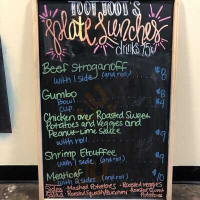 Plate Lunches
drinks 75¢
Beef Stroganoff $8
with 1 side (and roll)
Gumbo
Bowl $8
Cup
Chicken over Roasted Sweet
Potatoes and Veggies and
Peanut-Lime Sauce
with roll $9
Shrimp Etouffee
with 1 side (and roll) $9
Meatloaf
with 2 sides (and roll) $10
Mashed Potatoes Roasted Veggies